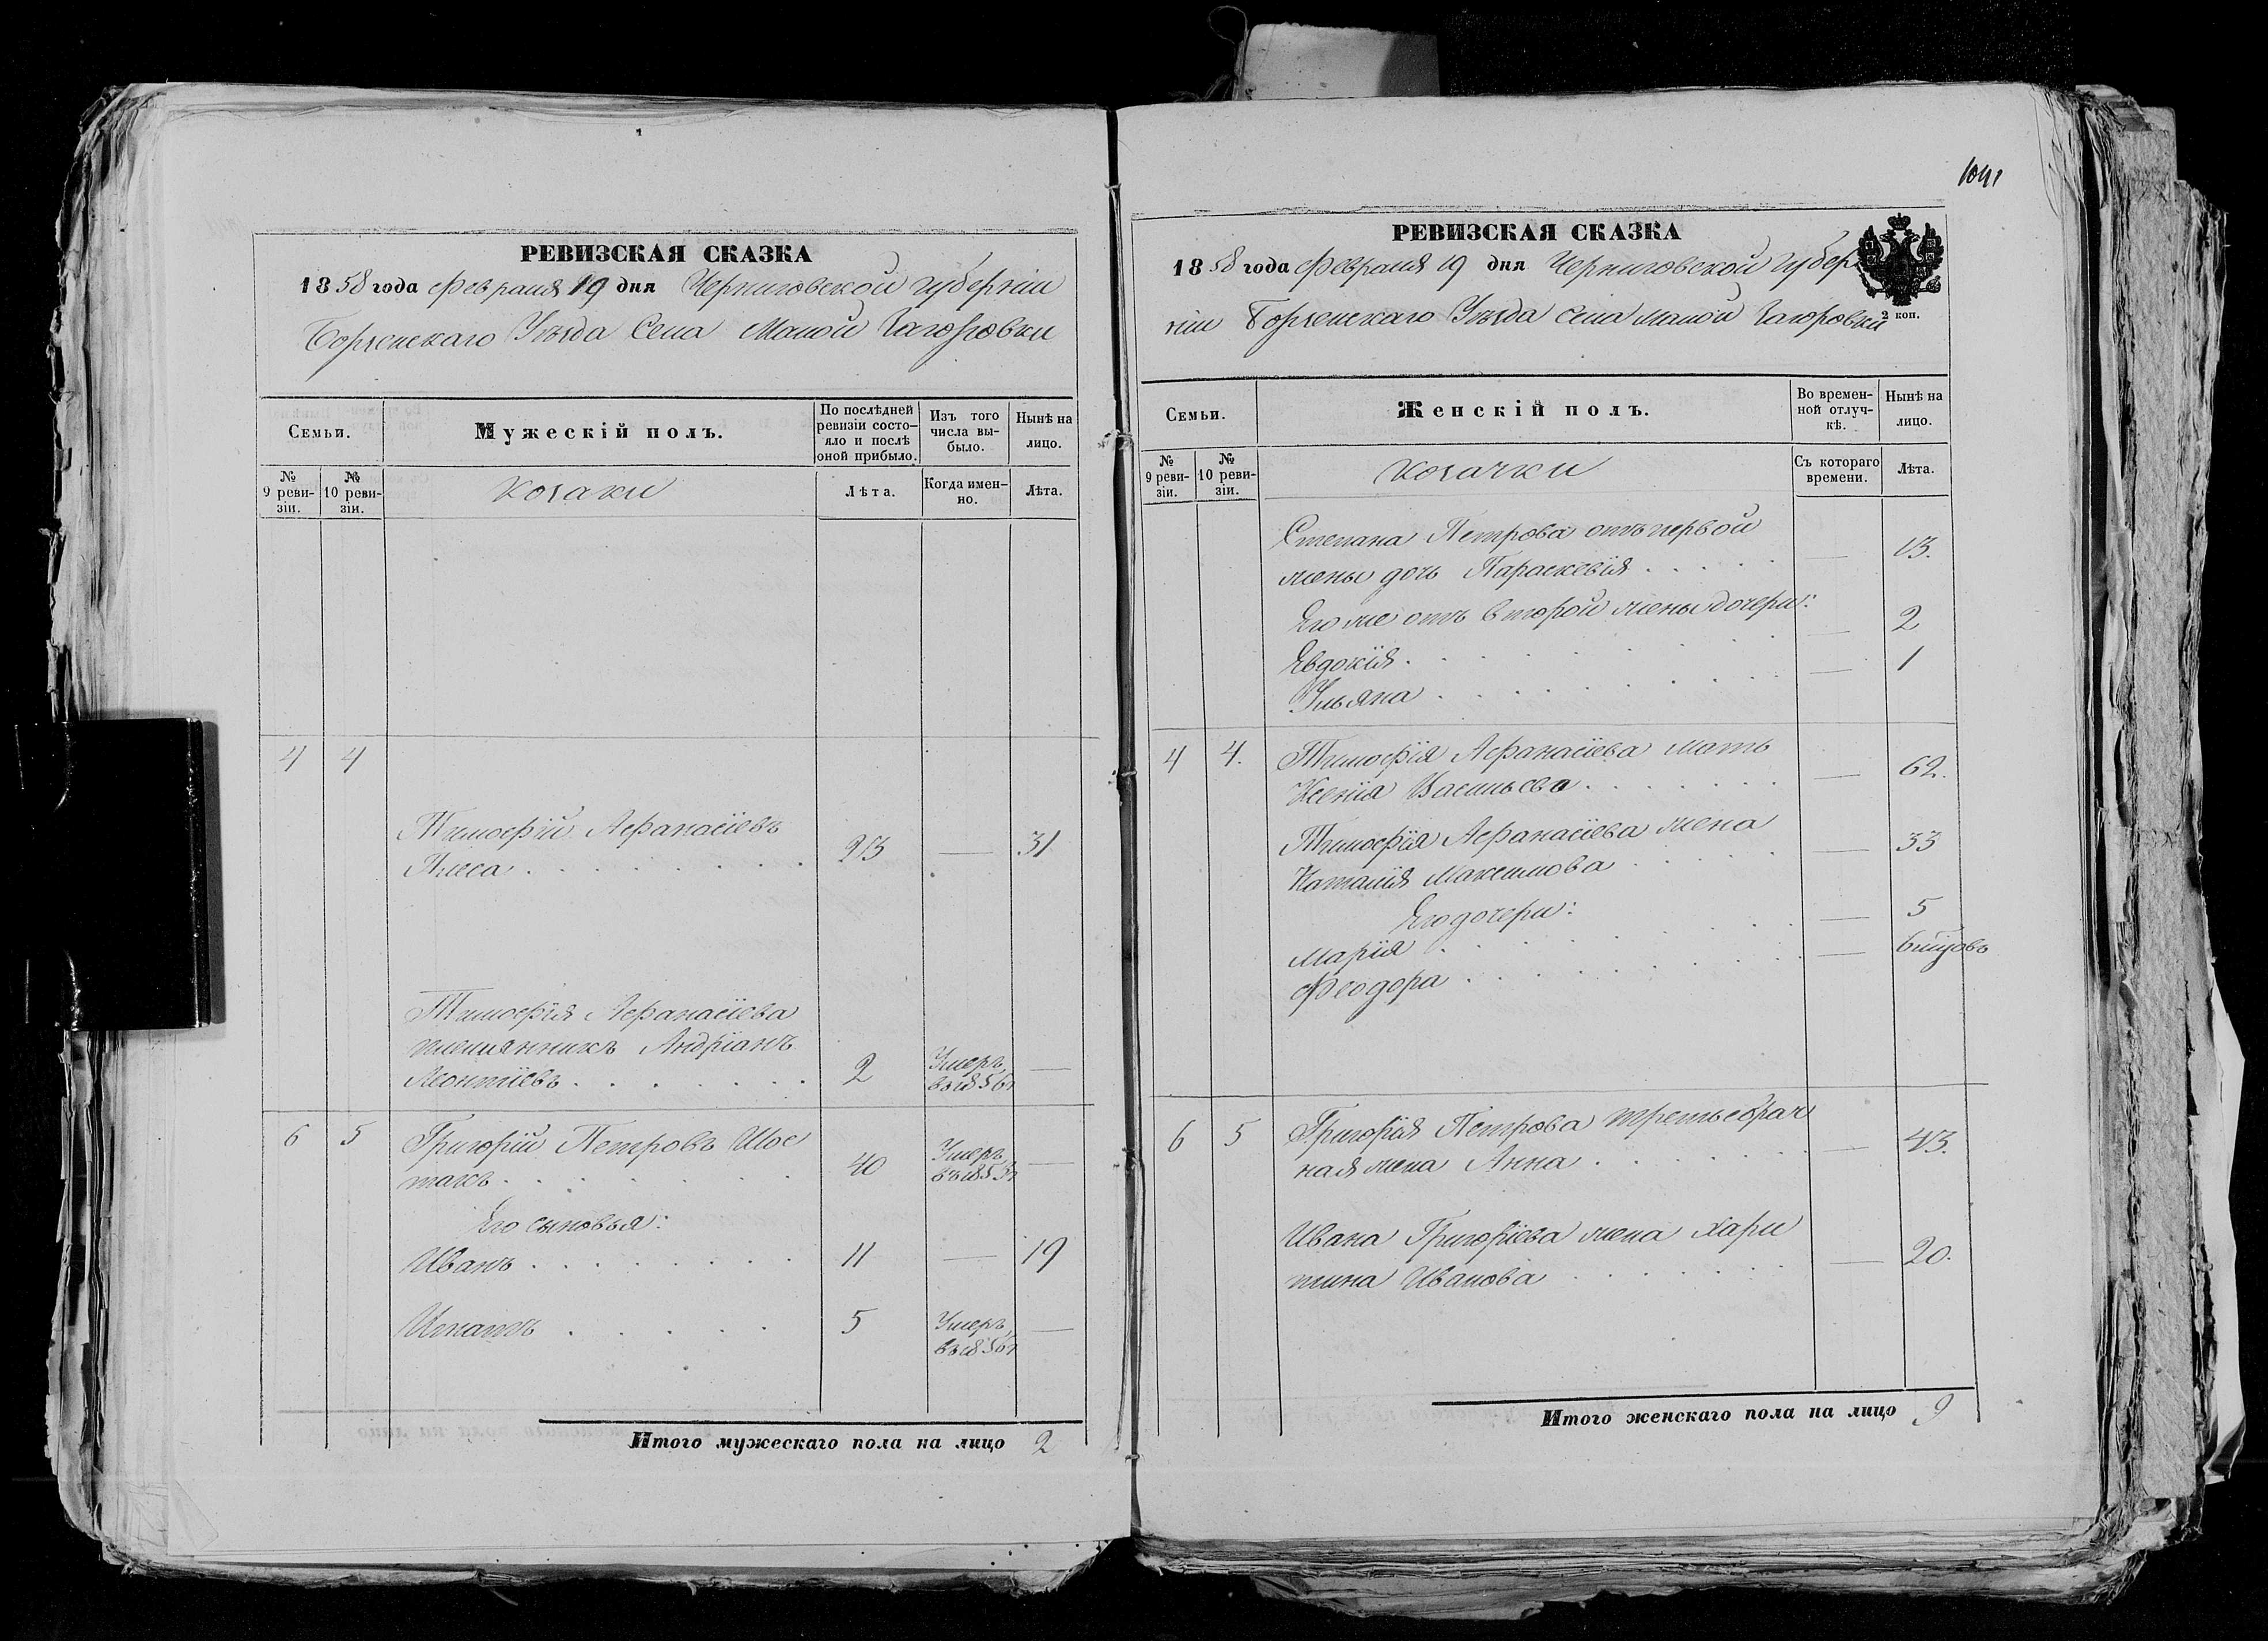 РЕВИЗСКАЯ СКАЗКА
1858 года февраля 19 дня Черниговской губерніи
Борзенскаго Уѣзда Села Малой Загоровки
Семьи.
Мужескій полъ.
По послѣдней ревизіи состо-яло и послѣ оной прибыло.
Изъ того числа вы-было.
Нынѣ на лицо.
№ 9 реви-зіи.
№ 10 реви-зіи.
козаки
Лѣта.
Когда имен-но.
Лѣта.
4 4
Тимофій Афанасіевъ
23 — 31
Тимофія Афанасіева
племянникъ Андріанъ
Леонтіевъ . . . . . . . 2 Умеръ въ 1856 г —
6 5 Григорій Петровъ Шос
такъ . . . . . . . 40 Умеръ —
Его сыновья:
Иванъ . . . . . . . 11 — 19
Игнатъ . . . . . 5 Умеръ въ 1856 г —
Итого мужескаго пола на лицо 2
1041
РЕВИЗСКАЯ СКАЗКА
1858 года февраля 19 дня Черниговской губер
ніи Борзенскаго Уѣзда Села Малой Загоровки
2 коп.
Семьи.
Женскій полъ.
Во времен-ной отлуч-кѣ.
Нынѣ на лицо.
№ 9 реви-зіи.
№ 10 реви-зіи.
козачки
Съ котораго времени.
Лѣта.
Степана Петрова отъ первой
жены дочь Параскевія . . . . . — 13.
Его же отъ второй жены дочери:
Евдокія . . . . . . . — 2
Ульяна . . . . . . . — 1
4 4. Тимофія Афанасіева мать
Ксенія Васильева . . . . . . . — 62.
Тимофія Афанасіева жена
Наталія Максимова . . . . . — 33
Его дочери:
Марія . . . . . . . — 5
Феодора . . . . . . . —
6 5 Григорія Петрова третьебрач
ная жена Анна . . . . . . . — 43.
Ивана Григоріева жена Хари
тина Иванова . . . . . . . — 20.
Итого женскаго пола на лицо 9